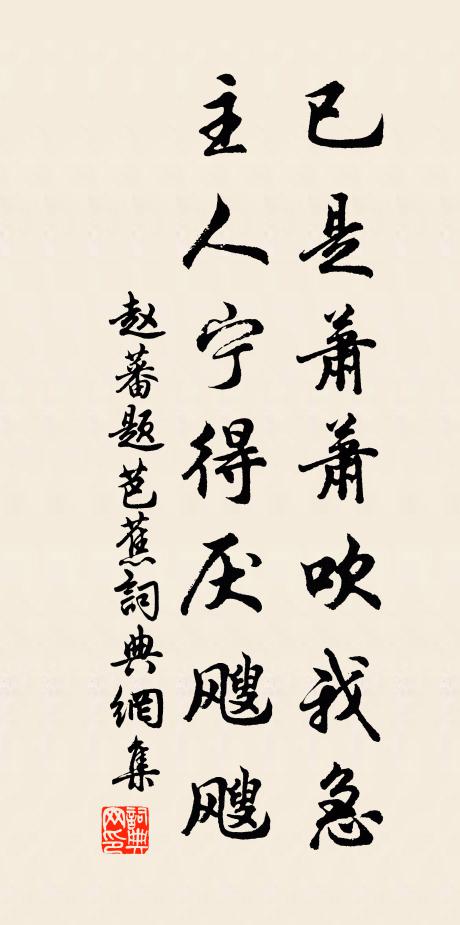 已是萧萧吹我急
主人宁得厌飕飕
赵蕃题芭蕉詞典網集
詞典网印